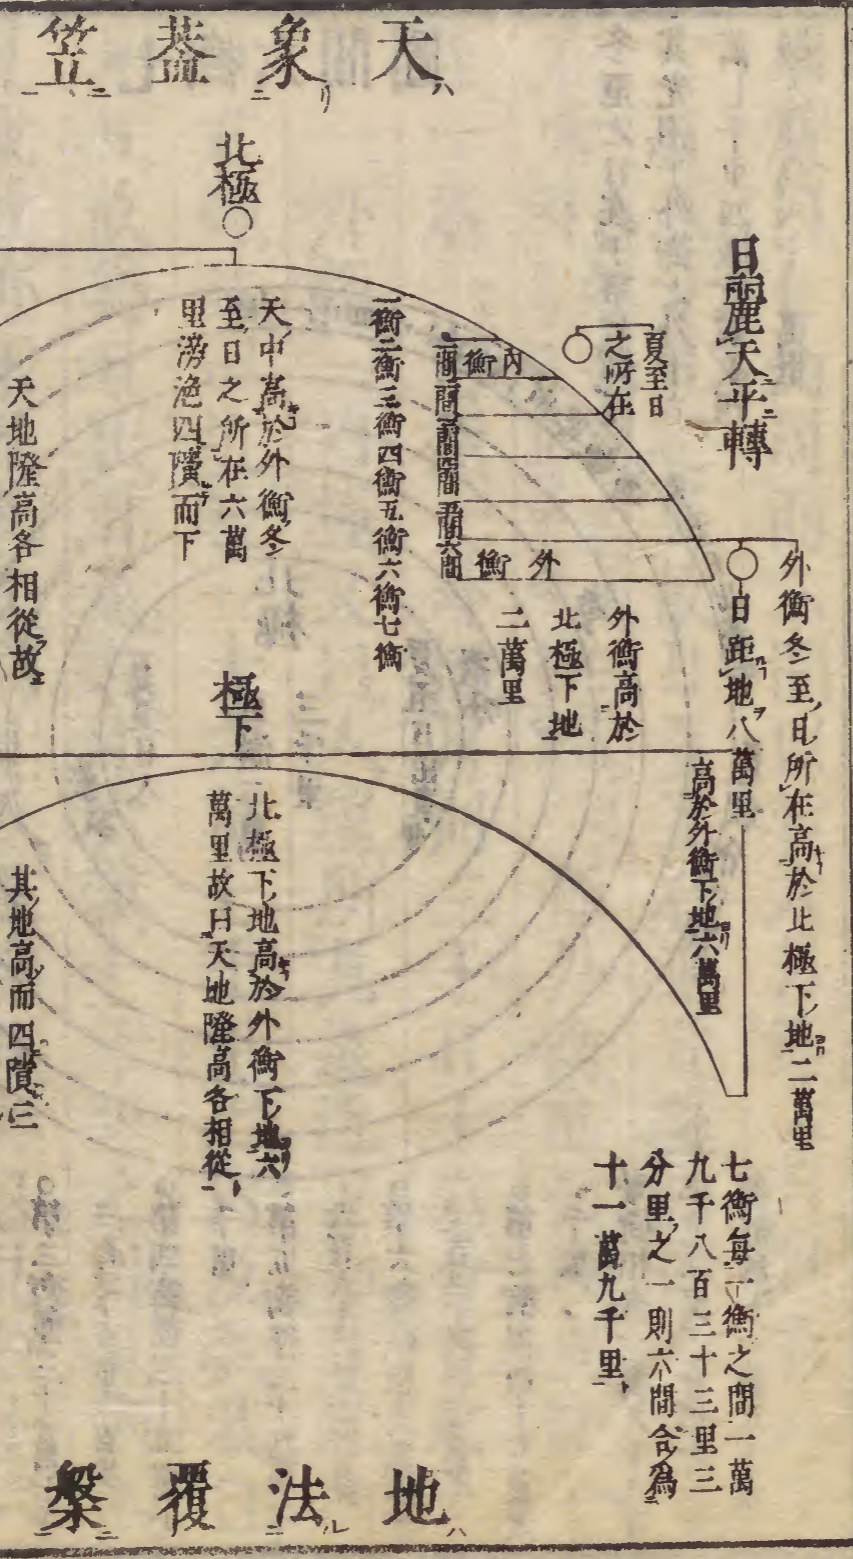 天象蓋笠
日麗天平轉
北極
夏至日
之所在
內衡
外衡
一衡二衡三衡四衡五衡六衡七衡
天中高於外衡冬
至日之所在六萬
里滂沲四隤而下
天地隆高各相從故
外衡冬至日所在高於北極下地二萬里
日距地八萬里
外衡高於
北極下地
二萬里
極下
高於外衡下地六萬里
北極下地高於外衡下地六
萬里故曰天地隆高各相從
其地高而四隤三
七衡每一衡之間一萬
九千八百三十三里三
分里之一則六間合為
十一萬九千里
地法覆槃